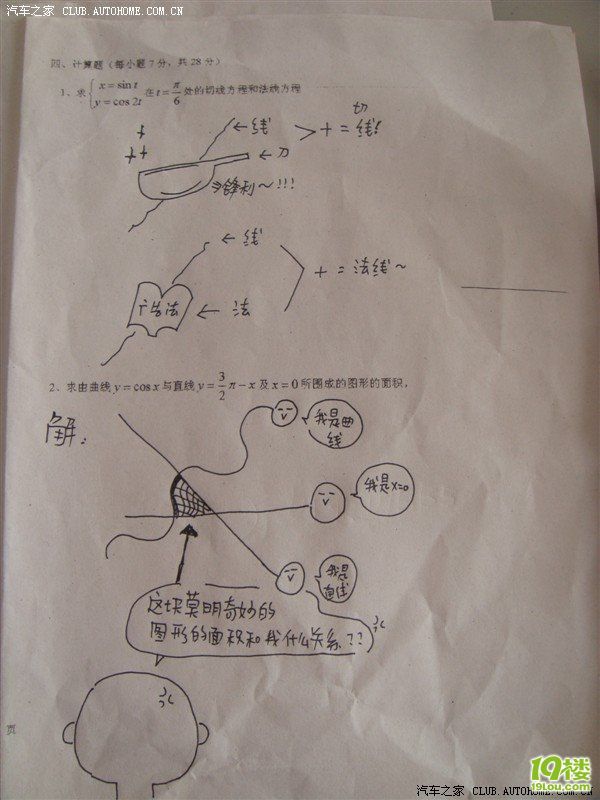 汽车之家 CLUB.AUTOHOME.COM.CN
四、计算题（每小题7分，共28分）
1、求{x=sin t y=cos 2t 在 t=π/6 处的切线方程和法线方程
← 线
← 刀
⇒锋利~!!!
> + = 切线!
← 线
广告法 ← 法
> + = 法线~
2、求由曲线 y=cos x 与直线 y=3/2π-x 及 x=0 所围成的图形的面积。
解：
我是曲
线
我是x=0
我是
直线
这块莫明奇妙的
图形的面积和我什么关系??
页
19楼
19lou.com
汽车之家 CLUB.AUTOHOME.COM.CN